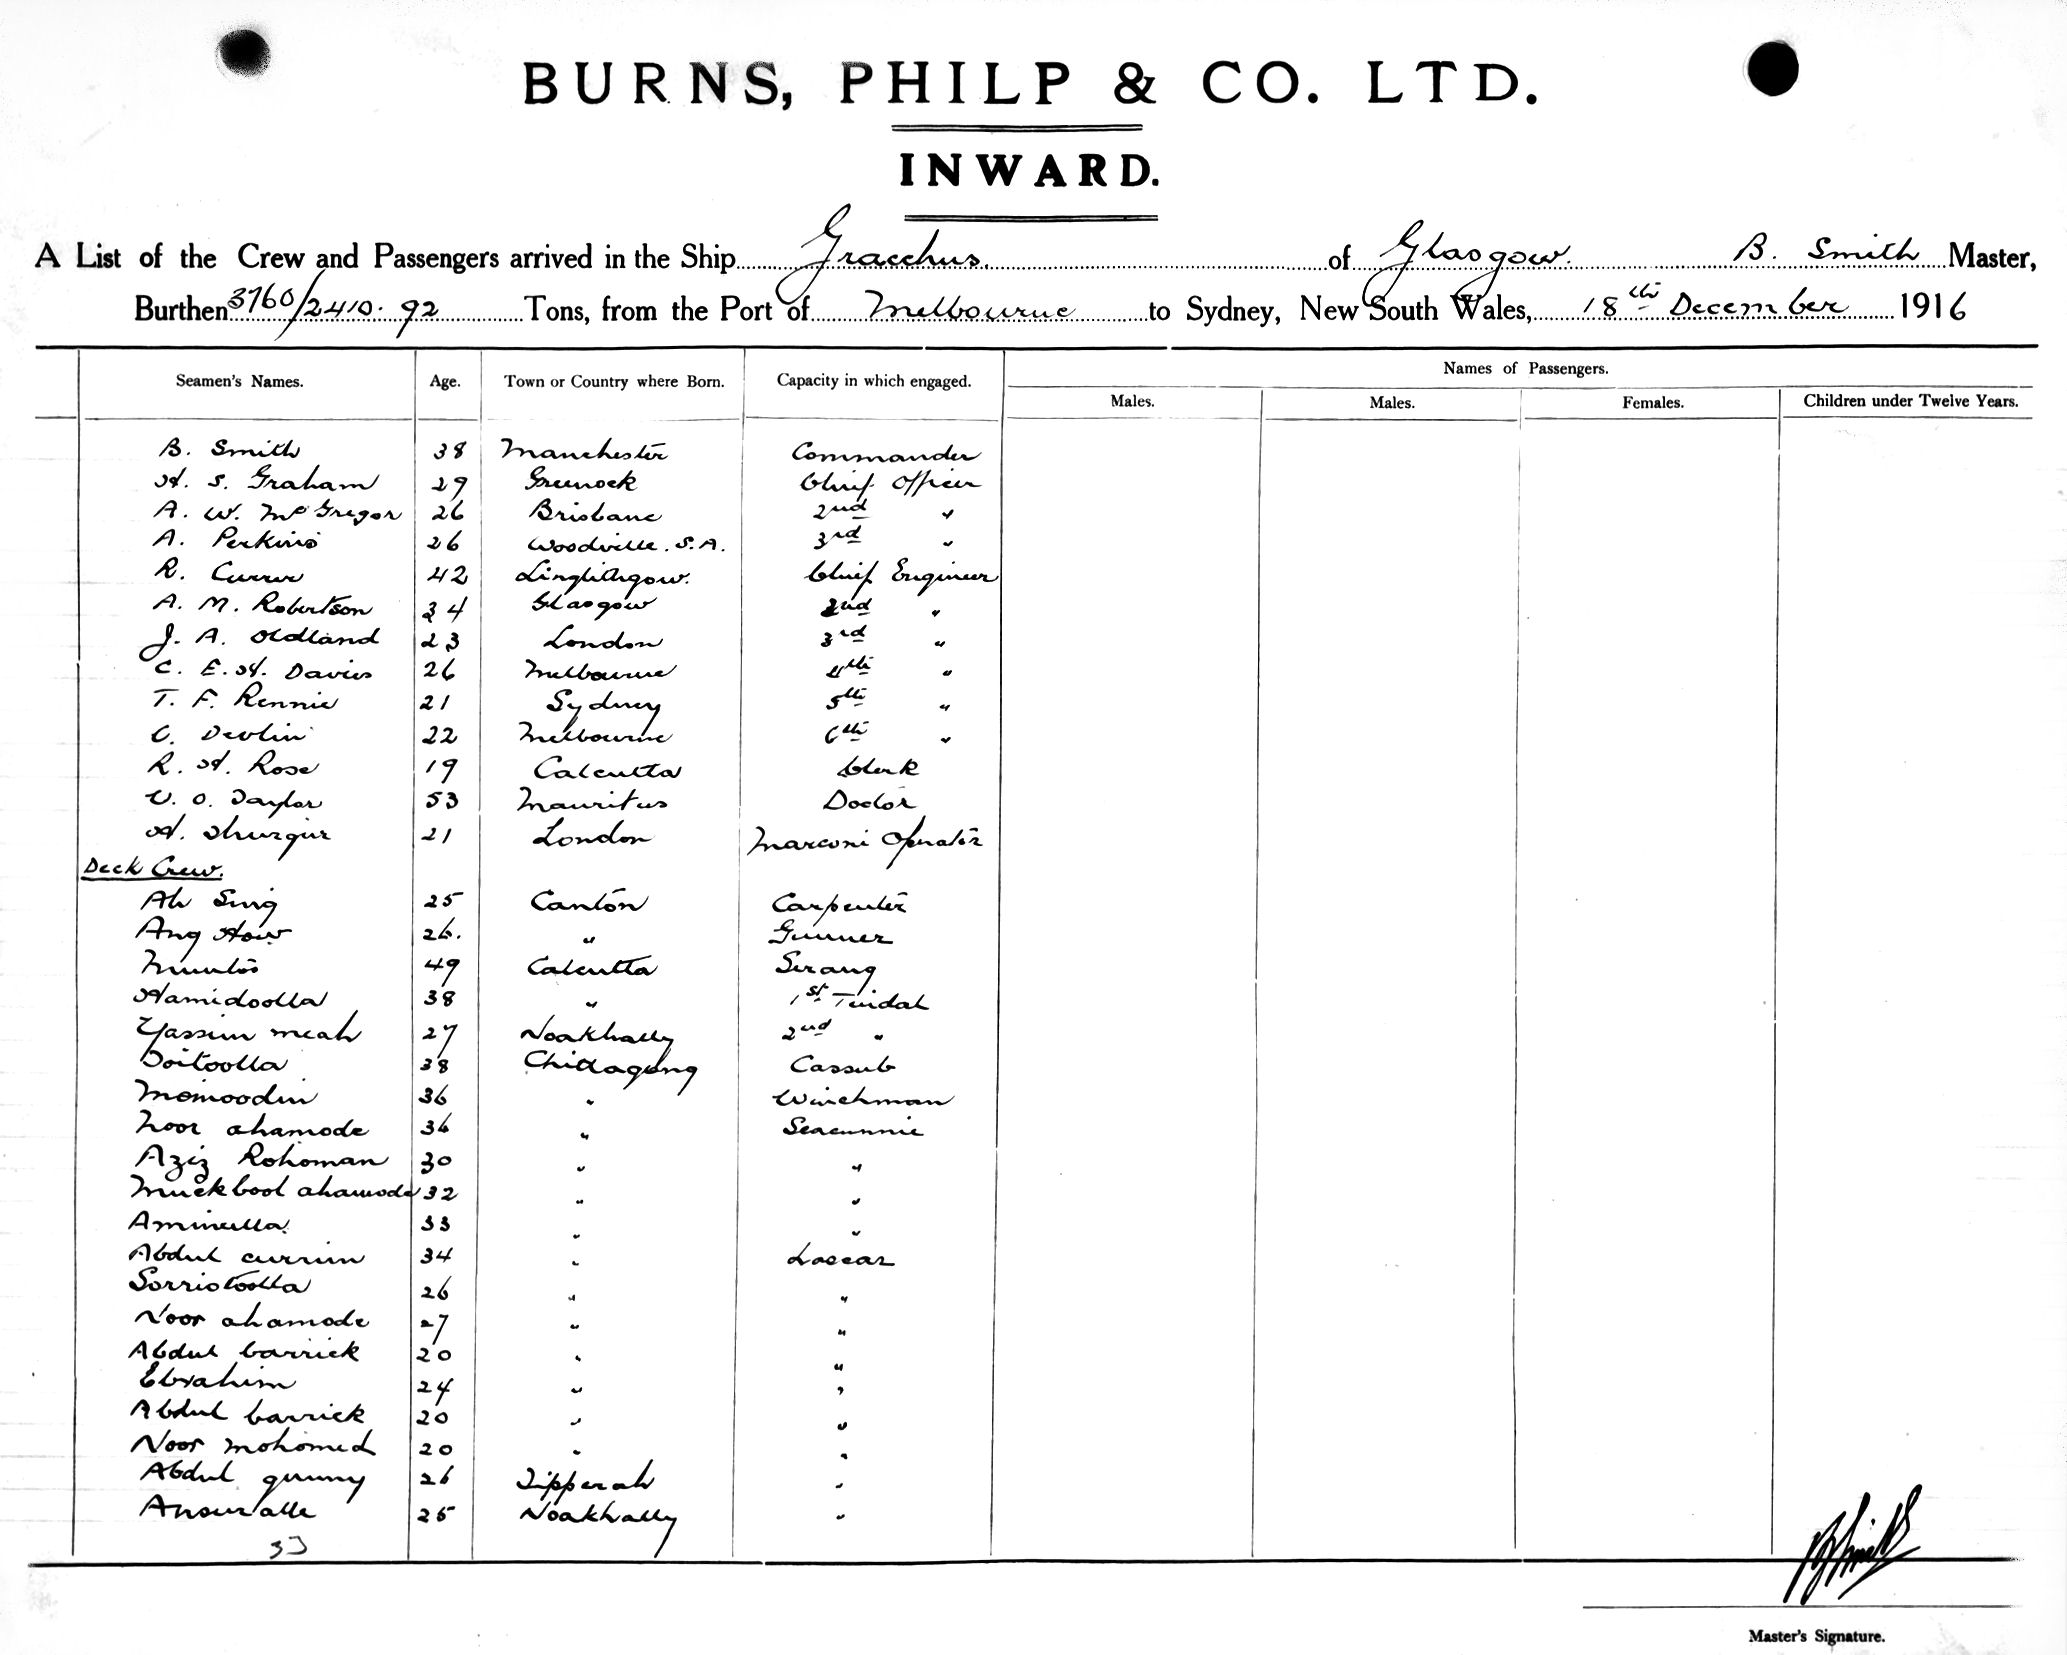 BURNS, PHILP & CO. LTD.
INWARD.
A List of the Crew and Passengers arrived in the Ship Gracchus. of Glasgow. B. Smith Master,
Burthen 3760/2410.92 Tons, from the Port of Melbourne to Sydney, New South Wales, 18th December 1916
Names of Passengers.
Seamen's Names. Age. Town or Country where Born. Capacity in which engaged. Males. Males. Females. Children under Twelve Years.
B. Smith 38 Manchester Commander
H. S. Graham 29 Greenock Chief Officer
A. W. McGregor 26 Brisbane 2nd "
A. Perkins 26 Woodville. S.A. 3rd "
R. Currie 42 Linglithgow. Chief Engineer
A. M. Robertson 34 Glasgow 2nd "
J. A. Oldland 23 London 3rd "
C. E. H. Davies 26 Melbourne 4th "
T. F. Rennie 21 Sydney 5th "
C. Devlin 22 Melbourne 6th "
R. H. Rose 19 Calcutta Clerk
O. Taylor 53 Mauritus Doctor
H. 21 London Marconi Operator
Deck Crew.
Ah Sing 25 Canton Carpenter
Ang How 26. " Gunner
49 Calcutta Serang
Hamidoolla 38 " 1st Tindal
Yassim meah 27 Noakhally 2nd "
38 Chittagong Cassub
Momoodin 36 " Winchman
Noor ahamode 36 " Seacunnie
Aziz Rohoman 30 " "
Muckbool ahamode 32 " "
Aminulla 33 " "
Abdul currim 34 " Lascar
Sorriotoolla 26 " "
Noor ahamode 27 " "
Abdul barrick 20 " "
Ebrahim 24 " "
Abdul barrick 20 " "
Noor mohomed 20 " "
Abdul gunny 26 Tipperah "
Ansur alle 25 Noakhally "
33
B Smith
Master's Signature.